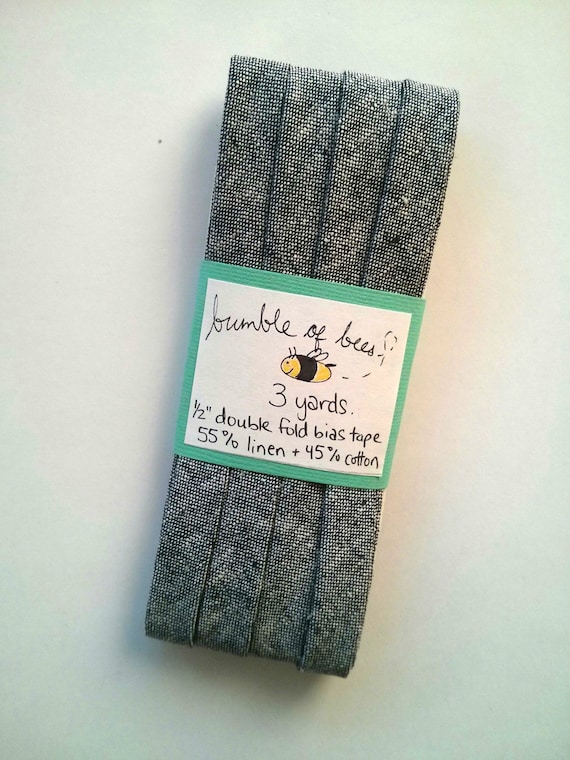 bumble of bees
3 yards.
1/2" double fold bias tape
55% linen + 45% cotton